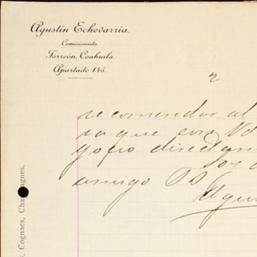 Agustín Echevarría
Comisionista
Torreón, Coahuila
Apartado 145.
2
recomendar al
sa que con
directam
soy
amigo
Agus
Cognacs, Champagnes,